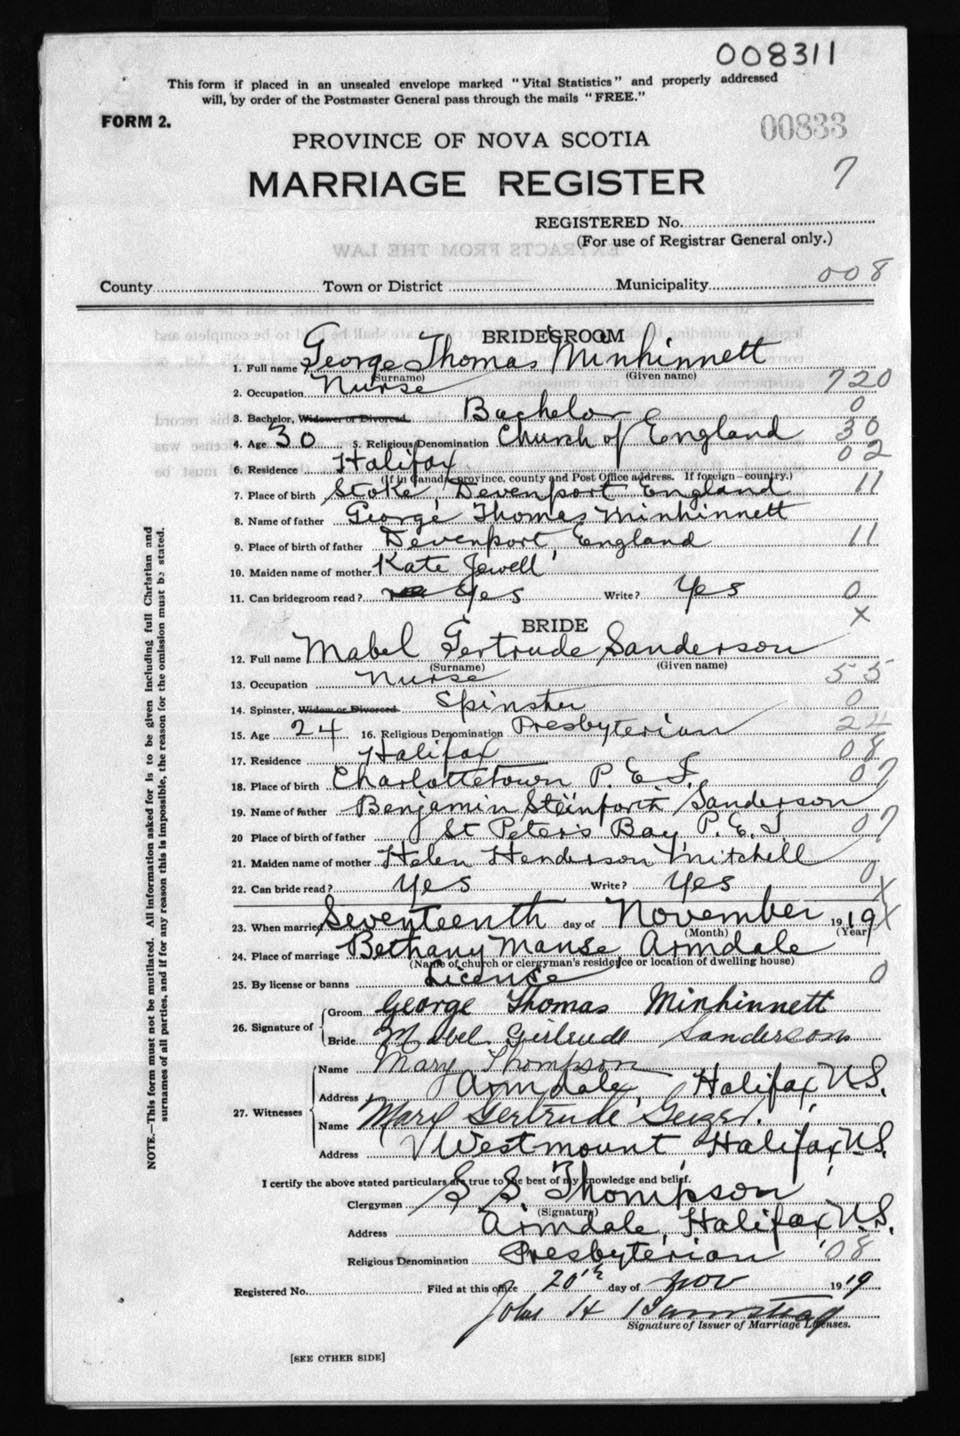 008311
This form if placed in an unsealed envelope marked "Vital Statistics" and properly addressed
will, by order of the Postmaster General pass through the mails "FREE."
FORM 2.
00833
PROVINCE OF NOVA SCOTIA
MARRIAGE REGISTER
7
REGISTERED No.
(For use of Registrar General only.)
EXTRACTS FROM THE LAW
County Town or District Municipality 008
BRIDEGROOM
1. Full name George Thomas Minhinnett
(Surname) (Given name)
2. Occupation Nurse 720
3. Bachelor, Widower or Divorced Bachelor 0
4. Age 30 5. Religious Denomination Church of England 30
6. Residence Halifax 02
(If in Canada province, county and Post Office address. If foreign—country.)
7. Place of birth Stoke, Devenport England 11
8. Name of father George Thomas Minhinnett
9. Place of birth of father Devenport, England 11
10. Maiden name of mother Kate Jewell
11. Can bridegroom read? Yes Write? Yes 0
X
BRIDE
12. Full name Mabel Gertrude Sanderson
(Surname) (Given name)
13. Occupation Nurse 55
14. Spinster, Widow or Divorced Spinster 0
15. Age 24 16. Religious Denomination Presbyterian 24
17. Residence Halifax 08
18. Place of birth Charlottetown P. E. I. 07
19. Name of father Benjamin Steinforth Sanderson
20 Place of birth of father St Peter's Bay P. E. I 07
21. Maiden name of mother Helen Henderson Mitchell
22. Can bride read? Yes Write? Yes 0
X
23. When married Seventeenth day of November 1919 X
(Month) (Year)
24. Place of marriage Bethany Manse, Armdale
(Name of church or clergyman's residence or location of dwelling house)
25. By license or banns License 0
26. Signature of Groom George Thomas Minhinnett
Bride Mabel Gertrude Sanderson
27. Witnesses Name Mary Thompson
Address Armdale, Halifax, N.S.
Name Mary Gertrude Geizer.
Address Westmount, Halifax, N.S.
I certify the above stated particulars are true to the best of my knowledge and belief.
Clergyman S. S. Thompson
(Signature)
Address Armdale, Halifax, N.S.
Religious Denomination Presbyterian 08
Registered No. Filed at this office 20th day of Nov 1919
John H
Signature of Issuer of Marriage Licenses.
[SEE OTHER SIDE]
NOTE.—This form must not be mutilated. All information asked for is to be given including full Christian and
surnames of all parties, and if for any reason this is impossible, the reason for the omission must be stated.